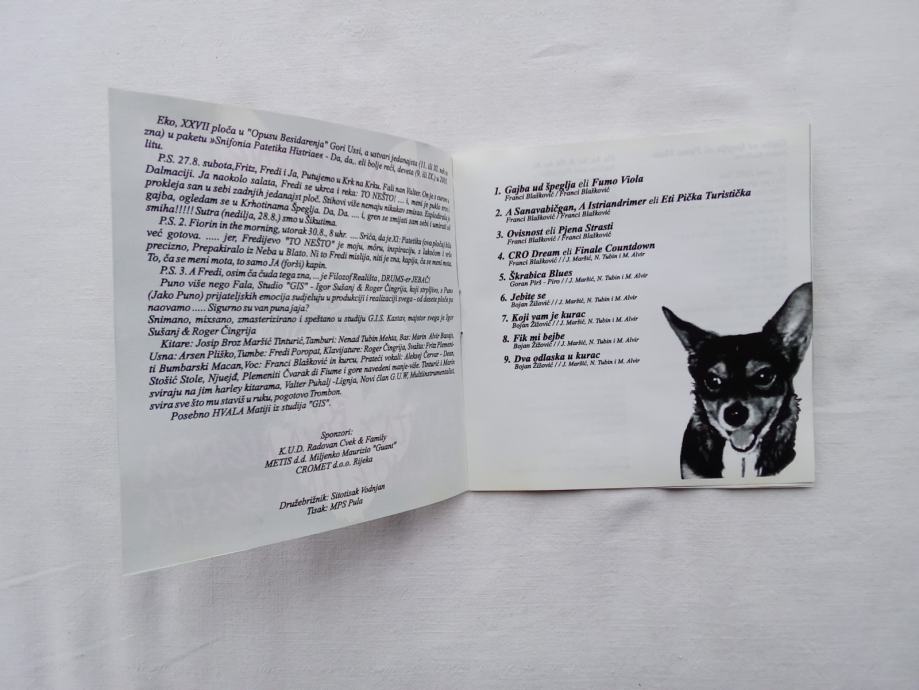 Eko, XXVII ploča u "Opusu Besidarenja" Gori Ussi, a ustvari jedanajsta (11. ili XI. nek se
zna) u paketu »Snifonia Patetika Histriaes - Da, da,. eli bolje reči, deveta (9. ili IX.) u 2005.
litu.
P.S. 27.8. subota, Fritz, Fredi i Ja, Putujemo u Krk na Krku. Fali nan Valter. On je s curon u
Dalmaciji. Ja naokolo salata, Fredi se ukrca i reka: TO NEŠTO! ... i, meni je puklo prvo i
prokleja san u sebi zadnjih jedanajst ploč. Stihovi više nemaju nikakov smisao. Explodirala je
gajba, ogledam se u Krhotinama Špeglja. Da, Da. .... i, gren se smijati sam sebi i umirati od
smiha!!!!! Sutra (nedilja, 28.8.) smo u Šikutima.
P.S. 2. Fiorin in the morning, utorak 30.8., 8 uhr. .... Srića, da je XI: Patetika (ova ploča) bila
već gotova. ..... jer, Fredijevo "TO NEŠTO" je moju, môru, inspiraciju, z lakoćom i vrlo
precizno, Prepakiralo iz Neba u Blato. Ni to Fredi mislija, niti je zna, kapija, ča se meni mota.
To, ča se meni mota, to samo JA (forši) kapin.
P.S. 3. A Fredi, osim ča čuda tega zna, ... je Filozof Reališta, DRUMS-er JEBAČ!
Puno više nego Fala, Studio "GIS" - Igor Sušanj & Roger Čingrija, koji strpljivo, s Puno
(Jako Puno) prijateljskih emocija sudjeluju u produkciji i realizaciji svega - od deseta ploče pa
naovamo ..... Sigurno su van puna jaja?
Snimano, mixsano, zmasterizirano i speštano u studiju G.I.S. Kastav, majstor svega je Igor
Sušanj & Roger Čingrija
Kitare: Josip Broz Maršić Tinturić, Tamburi: Nenad Tubin Mehta, Bas: Marin Alvir Basaja,
Usna: Arsen Pliško, Tumbe: Fredi Poropat, Klavijature: Roger Čingrija, Svašta: Fritz Plemeni-
ti Bumbarski Macan, Voc: Franci Blašković in kurcu, Prateći vokali: Aleksej Červar - Dean,
Stošić Stole, Njuejđ, Plemeniti Čvarak di Fiume i gore navedeni manje-više. Tinturić i Marin
sviraju na jim harley kitarama, Valter Puhalj -Lignja, Novi član G.U.W. Multiinstrumentalist,
svira sve što mu staviš u ruku, pogotovo Trombon.
Posebno HVALA Matiji iz studija "GIS".
Sponzori:
K.U.D. Radovan Cvek & Family
METIS d.d. Miljenko Maurizio "Guant"
CROMET d.o.o. Rijeka
Družebrižnik: Sitotisak Vodnjan
Tisak: MPS Pula
1. Gajba ud špeglja eli Fumo Viola
Franci Blašković / Franci Blašković
2. A Sanavabičgan, A Istriandrimer eli Eti Pička Turistička
Franci Blašković / Franci Blašković
3. Ovisnost eli Pjena Strasti
Franci Blašković / Franci Blašković
4. CRO Dream eli Finale Countdown
Franci Blašković / / J. Maršić, N. Tubin i M. Alvir
5. Škrabica Blues
Goran Pirš - Piro / / J. Maršić, N. Tubin i M. Alvir
6. Jebite se
Bojan Žižović / / J. Maršić, N. Tubin i M. Alvir
7. Koji vam je kurac
Bojan Žižović / / J. Maršić, N. Tubin i M. Alvir
8. Fik mi bejbe
Bojan Žižović / / J. Maršić, N. Tubin i M. Alvir
9. Dva odlaska u kurac
Bojan Žižović / / J. Maršić, N. Tubin i M. Alvir